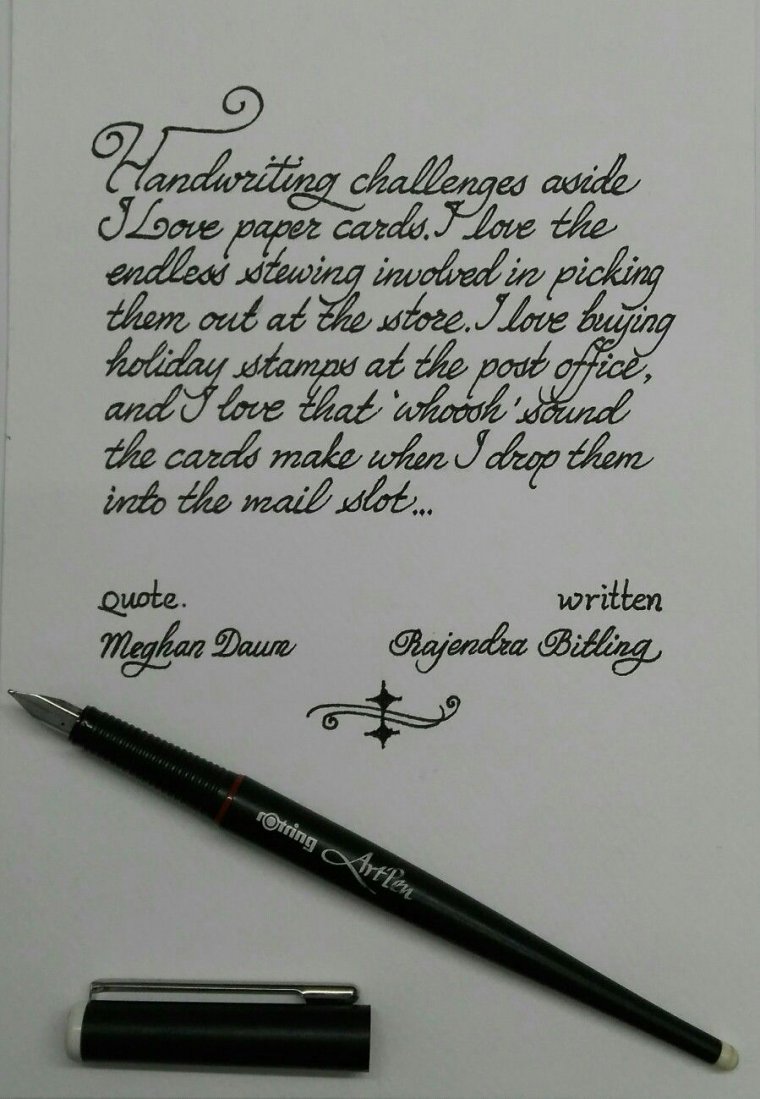 Handwriting challenges aside
I Love paper cards. I love the
endless stewing involved in picking
them out at the store. I love buying
holiday stamps at the post office,
and I love that 'whoosh' sound
the cards make when I drop them
into the mail slot...
quote.
written
Meghan Daum
Rajendra Bitling
rotring ArtPen